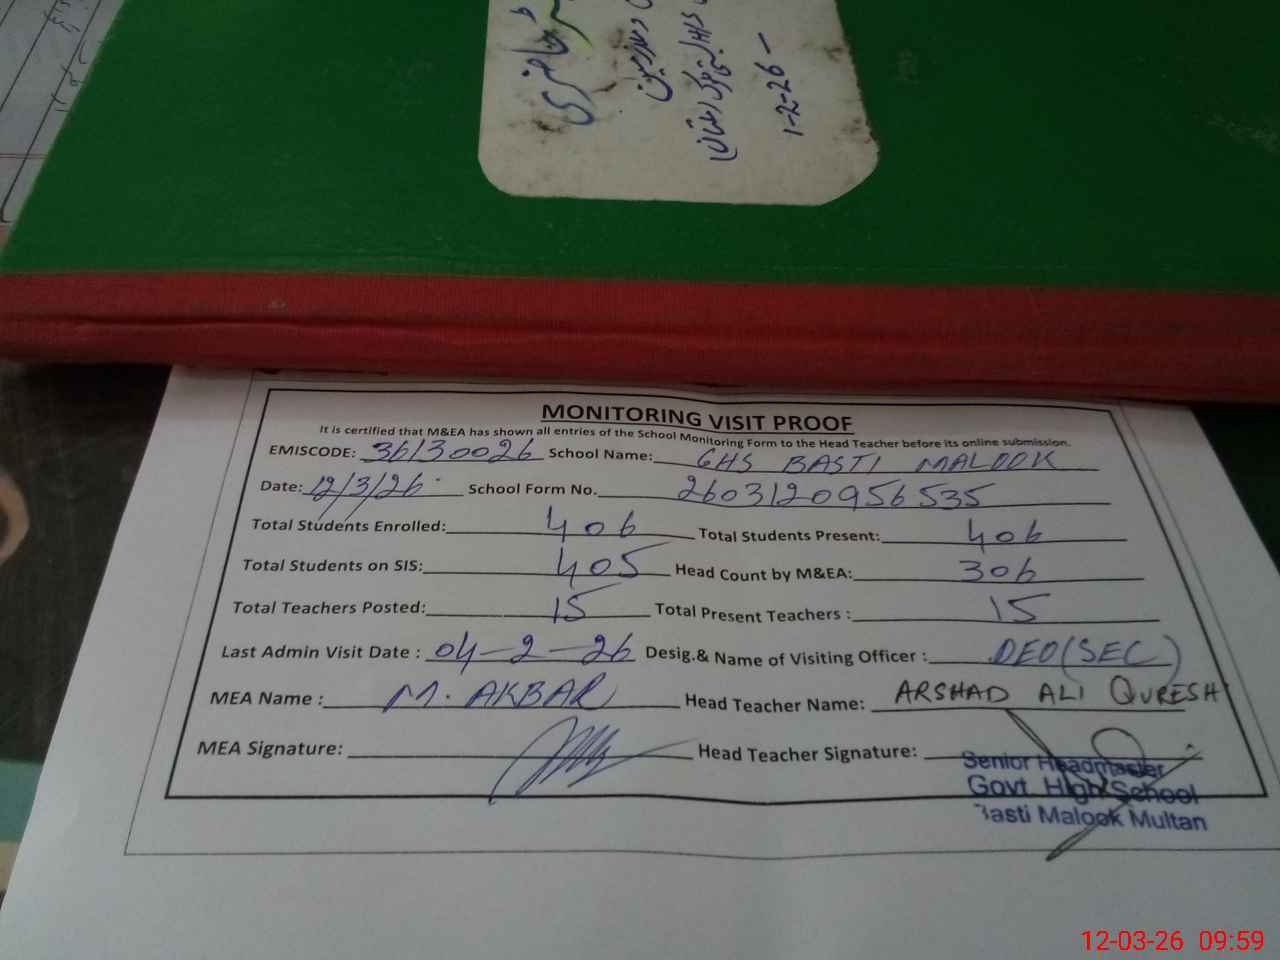 1-2-26 -
MONITORING VISIT PROOF
It is certified that M&EA has shown all entries of the School Monitoring Form to the Head Teacher before its online submission.
EMISCODE: 36130026 School Name: GHS BASTI MALOOK
Date: 12/3/26 School Form No. 2603120956535
Total Students Enrolled: 406 Total Students Present: 406
Total Students on SIS: 405 Head Count by M&EA: 306
Total Teachers Posted: 15 Total Present Teachers : 15
Last Admin Visit Date : 04-2-26 Desig.& Name of Visiting Officer : DEO(SEC)
MEA Name : M. AKBAR Head Teacher Name: ARSHAD ALI QURESHI
MEA Signature: Head Teacher Signature:
Senior Headmaster
Govt. High School
Basti Malook Multan
12-03-26 09:59